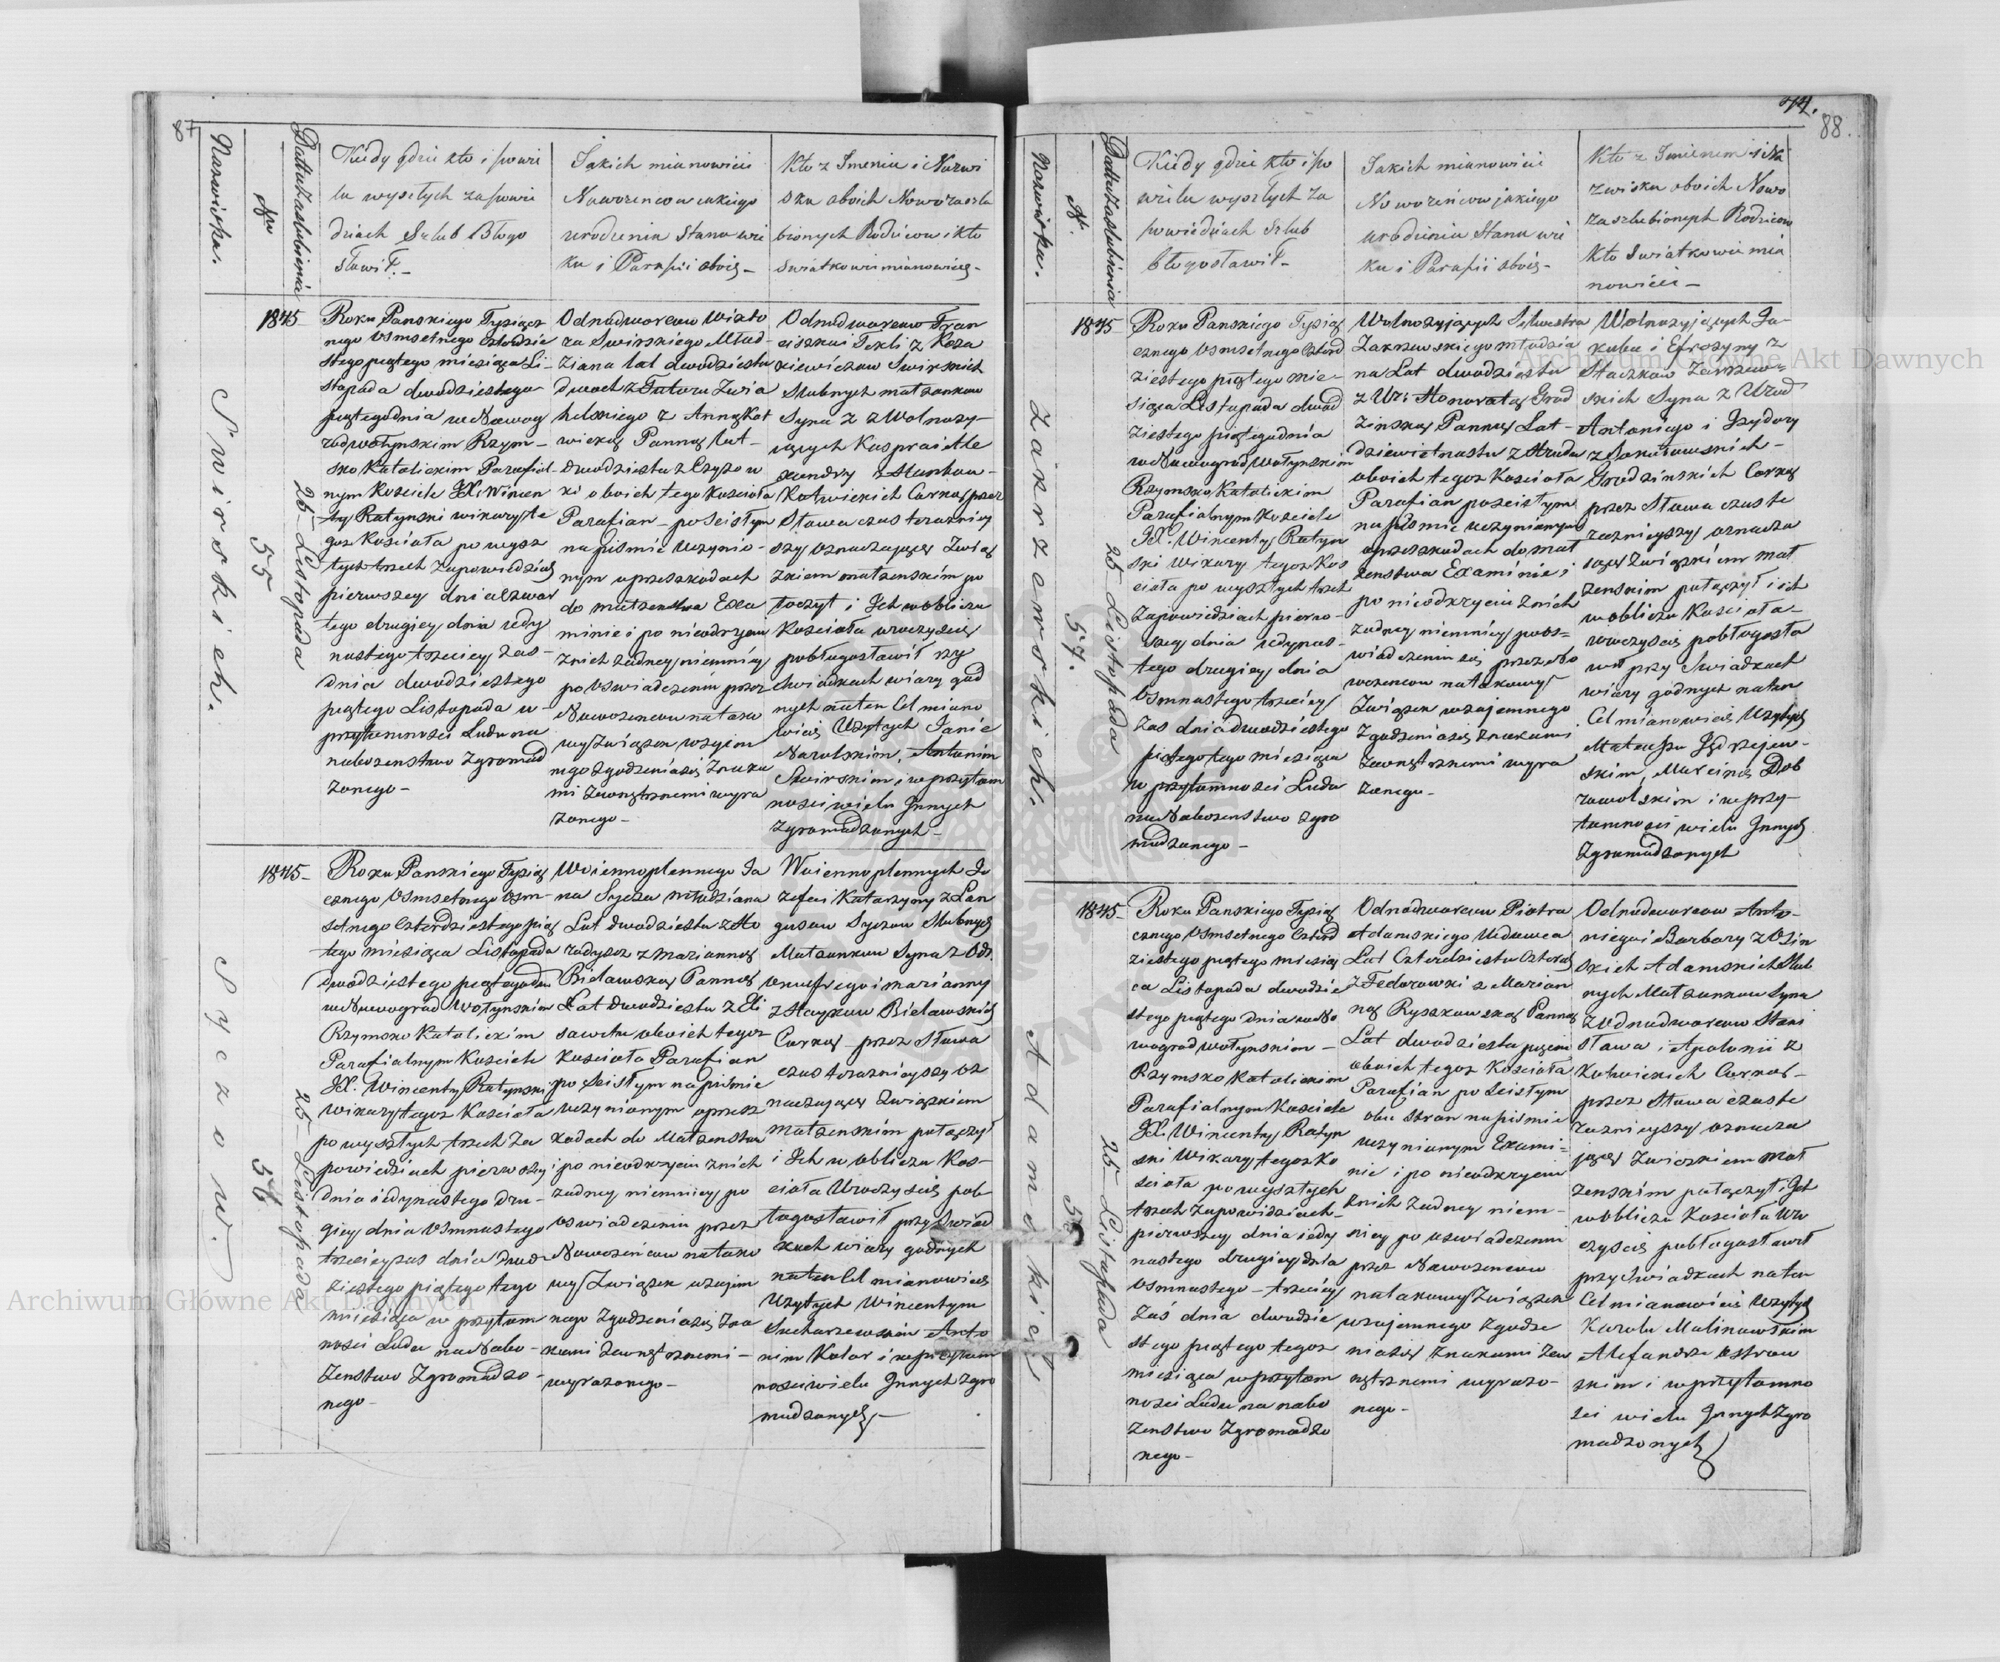 87
Nazwiska.
Nro
Datta zaslubienia
Kiedy gdzie kto i po wie
lu wyszłych zapowie
dziach Szlub Błogo
sławił. –
Jakich mianowicie
Nowożeńców jakiego
urodzenia Stanu wie
ku i Parafii obojg –
Kto z Imienia i Nazwi
ska oboich Nowozaszlu
bionych Rodziców i kto
swiatkowie mianowicie –
Swirskich.
55
25 – Listopada
1845
Roku Panskiego Tysiącz
nego Osmsetnego Czterdzie
stego piątego miesiąca Li-
stopada dwudziestego
piątego dnia w Nowog
rod wołynskim Rzym –
sko Katolickim Parafial-
nym Kosciele JX. Wincen
ty Ratynski wikary te
goz Koscioła po wysz
łych trzech zapowiedziach
pierwszey dnia czwar
tego drugiey dnia jedy
nastego trzeciey zas –
dnia dwudziestego
piątego Listopada w –
przytomnosci Ludu na
nabozenstwo zgromad
zonego –
Odnodworcow Wikto
ra Swirskiego Młod-
ziana lat dwudziestu
dwoch z
helskiego z Anną Kot
wicką Panną lat –
dwudziestu z Czyzow
ki oboich tego Koscioła
Parafian – po Scisłym
na pismie uczynio-
nym o przeszkodach
do małzenstwa Exa
minie i po nieodkryciu
z nich zadney niemniey
po Oswiadczeniu przez
Nowozencow na tako
wy Związek wzajem
nego zgodzenia się Znaka
mi zewnętrznemi wyra
żonego –
Odnodworcow Fran
ciszka i Tekli z Koza
kiewiczow Swirskich
Slubnych małzonkow
Syna z z Wolnozy-
jących Kaspra i Ale
xandry z
Kotwickich Corką przez
Słowa czas teraznie
szy Oznaczające Zwią
zkiem małzenskim po
łączył i Ich w obliczu
Koscioła uroczyscie
pobłogosławił przy
Swiadkach wiary god
nych na ten Cel miano
wicie Uzytych Janie
Narolskim, Antonim
Swirskim i w przytom
nosci wielu Innych
Zgromadzonych –
Syczow.
56
25 – Listopada
1845 –
Roku Panskiego Tysiąc
cznego Osmsetnego Osm-
setnego Czterdziestego pią
tego miesiąca Listopada
dwudziestego piątego dnia
w Nowogrod Wołynskim
Rzymsko Katolickim
Parafialnym Kosciele
JX. Wincenty Ratynski
wikary tegoz Koscioła
po wyszłych trzech za
powiedziach pierwszey
dnia jedynastego dru-
giey dnia Osmnastego
trzeciey zas dnia Dwud
ziestego piątego tego
miesiąca w przytom
nosci Ludu na Nabo-
żenstwo Zgromadzo
nego –
Woiennoplennego Ja
na Sycza młodziana
Lat dwudziestu z Ho
rodyszcz z Marianną
Bielawską Panną
Lat dwudziestu z Eli
sawetu oboich tegoz
Koscioła Parafian
po Scisłym na pismie
uczynionym o przesz
kodach do Małzenstwa
i po nieodkryciu z nich
zadney niemniey po
oswiadczeniu przez
Nowozencow na tako
wy Związek wzajem
nego Zgodzenia się Zna
kami Zewnętrznemi –
wyrazonego –
Woiennoplennych Jo
zefa i Katarzyny z Lan
gusow Syczow Slubnych
Małzonkow Syna z Od:
Onufrego i Marianny
z Bielawskich
Corką – przez Słowa
czas teraznieyszy oz
naczające Związkiem
małzenskim połączył
i Ich w obliczu Kos-
cioła Uroczyscie pob
łogosławił przy Swiad
kach wiary godnych
na ten Cel mianowicie
Uzytych Wincentym
Sucharzewskim Anto
nim Kolor i w przytom
nosci wielu Innych Zgro
madzonych –
44.
88.
Nazwiska.
N.
Datta zaslubienia
Kiedy gdzie kto i po
wielu wyszłych za
powiedziach Szlub
błogosławił –
Jakich mianowicie
Nowożeńców jakiego
urodzenia Stanu wie
ku i Parafii obojg –
Kto z Imienem i Na
zwiska oboich Nowo
zaszlubionych Rodzicow
kto Swiatkowie mia
nowicie –
Zakrzewskich.
57.
25 – Listopada
1845
Roku Panskiego Tysiąc
cznego Osmsetnego Czterd
ziestego piątego mie-
siąca Listopada dwud
ziestego piątego dnia
w Nowogrod Wołynskim
Rzymsko Katolickim
Parafialnym Kosciele
JX. Wincenty Ratyn
ski Wikary tegoz Kos
cioła po wyszłych trzech
Zapowiedziach pierw-
szey dnia jedynas-
tego drugiey dnia
Osmnastego trzeciey
zas dnia dwudziestego
piątego tego miesiąca
w przytomnosci Ludu
na Nabozenstwo zgro
madzonego –
Wolnozyjących Silwestra
Zakrzewskiego młodzia
na Lat dwudziestu
z Ur: Honoratą Grod
zinską Panną Lat –
dziewietnastu z
oboich tegoz Koscioła
Parafian po scisłym
na pismie uczynionym
o przeszkodach do mał
zenstwa Examinie i
po nieodkryciu z nich
zadney niemniey po os-
wiadczeniu się przez No
wozencow na takowy
Związek wzajemnego
Zgodzenia się Znakami
Zewnętrznemi wyra
zonego –
Wolnozyjących Ja-
kuba i Efrozyny z
Staszkow Zakrzew-
skich Syna z Urod
Antoniego i Izydory
z Sokołowskich –
Grodzinskich Corką
przez Słowa czas te
raznieyszy oznacza
jące Związkiem mał
zenskim połączył i ich
w obliczu Koscioła –
uroczyscie pobłogosła
wił przy Swiadkach
wiary godnych na ten
Cel mianowicie Uzytych
Mateuszu Jędrzejew-
skim, Marcinie Dob
rowolskim i w przy-
tomnosci wielu Innych
Zgromadzonych
Adamskich
58
25 – Listopada
1845 –
Roku Panskiego Tysiąc
cznego Osmsetnego Czterd
ziestego piątego miesią
ca Listopada dwudzie
stego piątego dnia w No
wogrod wołynskim –
Rzymsko Katolickim
Parafialnym Kosciele
JX. Wincenty Ratyn
ski Wikary tegoz Ko
scioła po wyszłych
trzech Zapowiedziach –
pierwszey dnia jedy
nastego drugiey dnia
Osmnastego – trzeciey
Zaś dnia dwudzie
stego piątego tegoz
miesiąca w przytom
nosci Ludu na nabo
zenstwo Zgromadzo
nego –
Odnodworcow Piotra
Adamskiego Wdowca
Lat Czterdziestu Czterech
z Fedorowki z Marian
ną Ryszkowską Panną
Lat dwudziestu
oboich tegoz Koscioła
Parafian po Scisłym
obu stron na pismie
uczynionym Exami-
nie i po nieodkryciu
z nich zadney niem-
niey po oswiadczeniu
przez Nowozencow
na takowy Związek
wzajemnego Zgodze
nia się Znakami Zew
nętrznemi wyrazo-
nego –
Odnodworcow Anto-
niego i Barbary z Osin
skich Adamskich Slub
nych Małzonkow Syna
z Odnodworcow Stani
sława i Apolonii z
Kotwickich Corką –
przez Słowa czas te
raznieyszy oznacza
jące Zwiazkiem mał
zenskim połączył i Ich
w obliczu Koscioła Uro
czyscie pobłogosławił
przy Swiadkach na ten
Cel mianowicie Uzytych
Karolu Malinowskim
Alexandrze Ostrow
skim i w przytomno
sci wielu Innych Zgro
madzonych
Archiwum Główne Akt Dawnych
Archiwum Główne Akt Dawnych